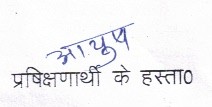 आयुष
प्रषिक्षणार्थी के हस्ता०